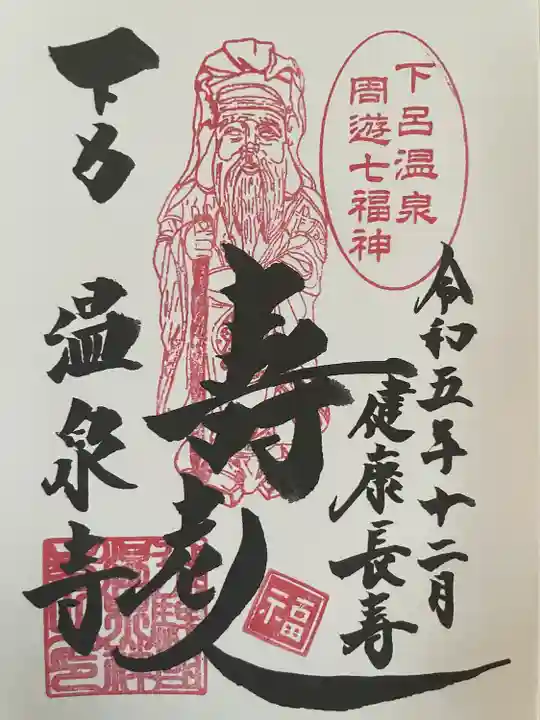 下呂温泉
周遊七福神
令和五年十二月
健康長寿
寿老人
福
下呂
温泉寺